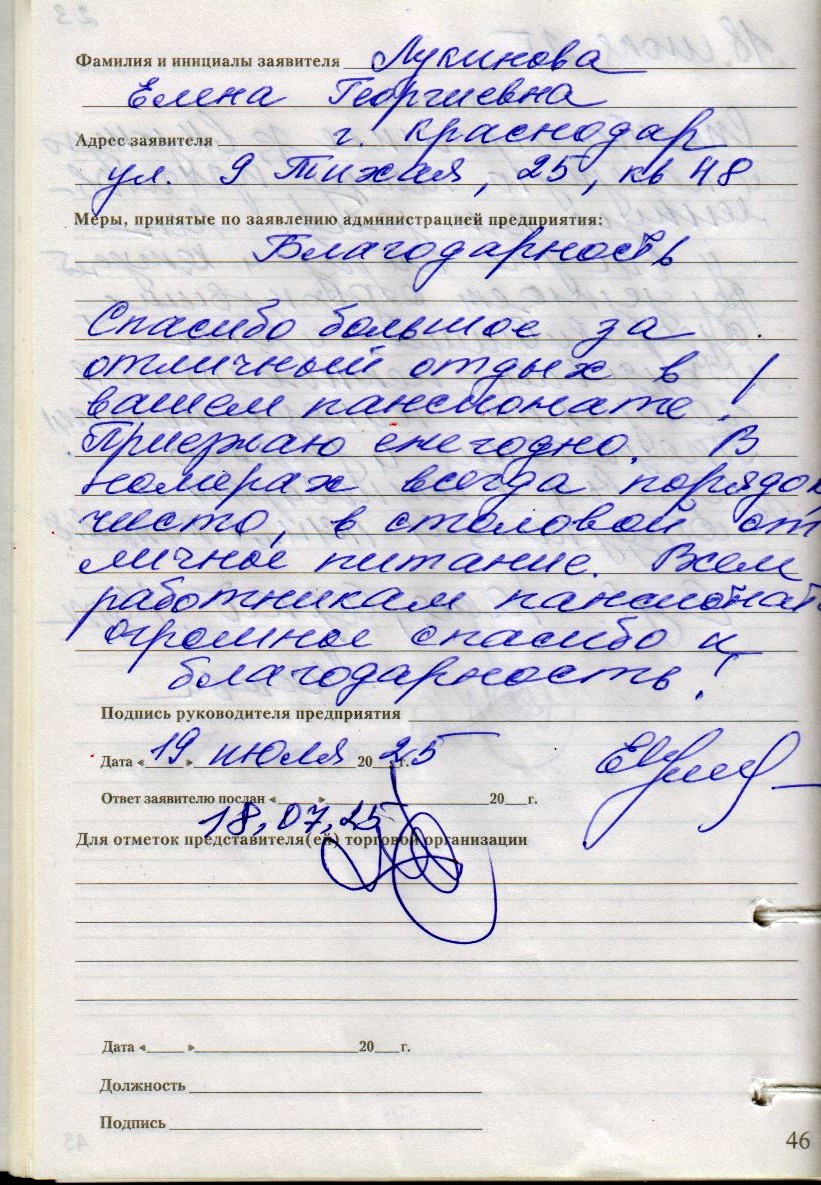 Фамилия и инициалы заявителя Лукинова
Елена Георгиевна
Адрес заявителя г. Краснодар
ул. 9 Тихая, 25, кв 48
Меры, принятые по заявлению администрацией предприятия:
Благодарность
Спасибо большое за
отличный отдых в
вашем пансионате!
Приезжаю ежегодно. В
номерах всегда порядок
чисто, в столовой от
личное питание. Всем
работникам пансионата
огромное спасибо и
благодарность!
Подпись руководителя предприятия
Дата «19» июля 2025г.
Ответ заявителю послан «___»___20__г.
18.07.25
Для отметок представителя(ей) торговой организации
Дата «___»___20__г.
Должность
Подпись
46